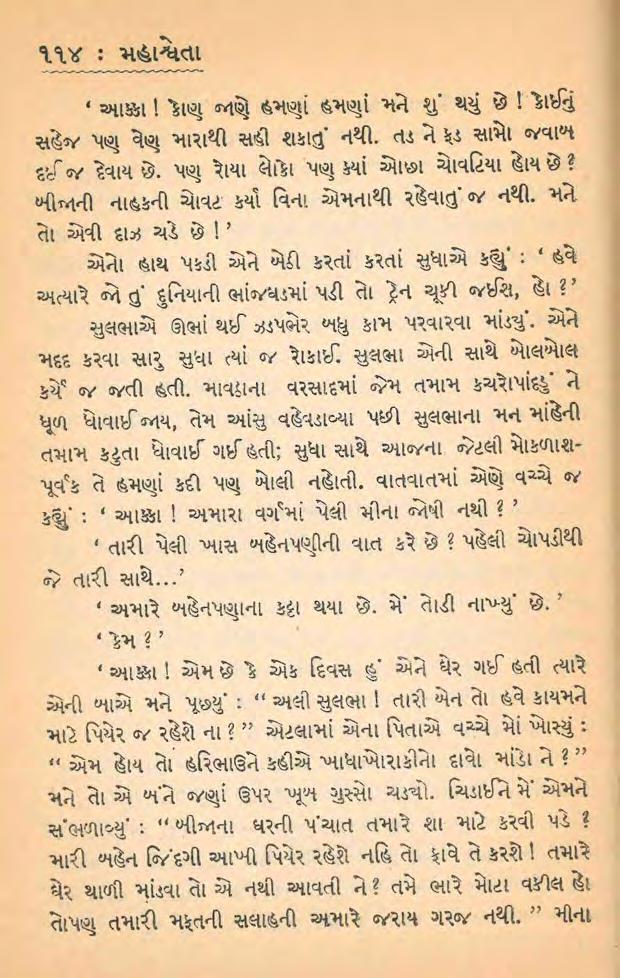 ૧૧૪ : મહાશ્વેતા
‘ આક્કા ! કોણ જાણે હમણાં હમણાં મને શું થયું છે ! કોઈનું
સહેજ પણ વેણ મારાથી સહી શકાતું નથી. તડ ને ફડ સામો જવાબ
દઈ જ દેવાય છે. પણ રોયા લોકો પણ ક્યાં ઓછા ચોવટિયા હોય છે ?
બીજાની નાહકની ચોવટ કર્યા વિના એમનાથી રહેવાતું જ નથી. મને
તો એવી દાઝ ચડે છે ! ’
એનો હાથ પકડી એને બેઠી કરતાં કરતાં સુધાએ કહ્યું : ‘ હવે
અત્યારે જો તું દુનિયાની ભાંજઘડમાં પડી તો ટ્રેન ચૂકી જઈસ, હો ?’
સુલભાએ ઊભાં થઈ ઝડપભેર બધુ કામ પરવારવા માંડ્યું. એને
મદદ કરવા સારુ સુધા ત્યાં જ રોકાઈ. સુલભા એની સાથે બોલબોલ
કર્યે જ જતી હતી. માવઠાના વરસાદમાં જેમ તમામ કચરોપાંદડું ને
ધૂળ ધોવાઈ જાય, તેમ આંસુ વહેવડાવ્યા પછી સુલભાના મન માંહેની
તમામ કટુતા ધોવાઈ ગઈ હતી; સુધા સાથે આજના જેટલી મોકળાશ-
પૂર્વક તે હમણાં કદી પણ બોલી નહોતી. વાતવાતમાં એણે વચ્ચે જ
કહ્યું : ‘ આક્કા ! અમારા વર્ગમાં પેલી મીના જોષી નથી ? ’
‘ તારી પેલી ખાસ બહેનપણીની વાત કરે છે ? પહેલી ચોપડીથી
જે તારી સાથે...’
‘ અમારે બહેનપણાના કટ્ટા થયા છે. મેં તોડી નાખ્યું છે. ’
‘ કેમ ? ’
‘ આક્કા ! એમ છે કે એક દિવસ હું એને ઘેર ગઈ હતી ત્યારે
એની બાએ મને પૂછ્યું : “ અલી સુલભા ! તારી બેન તો હવે કાયમને
માટે પિયેર જ રહેશે ના ? ” એટલામાં એના પિતાએ વચ્ચે મોં ખોસ્યું :
“ એમ હોય તો હરિભાઉને કહીએ ખાધાખોરાકીનો દાવો માંડો ને ? ”
મને તો એ બંને જણાં ઉપર ખૂબ ગુસ્સો ચડ્યો. ચિડાઈને મેં એમને
સંભળાવ્યું : “ બીજાના ઘરની પંચાત તમારે શા માટે કરવી પડે ?
મારી બહેન જિંદગી આખી પિયેર રહેશે નહિ તો ફાવે તે કરશે ! તમારે
ઘેર થાળી માંડવા તો એ નથી આવતી ને ? તમે ભારે મોટા વકીલ હો
તોપણ તમારી મફતની સલાહની અમારે જરાય ગરજ નથી. ” મીના